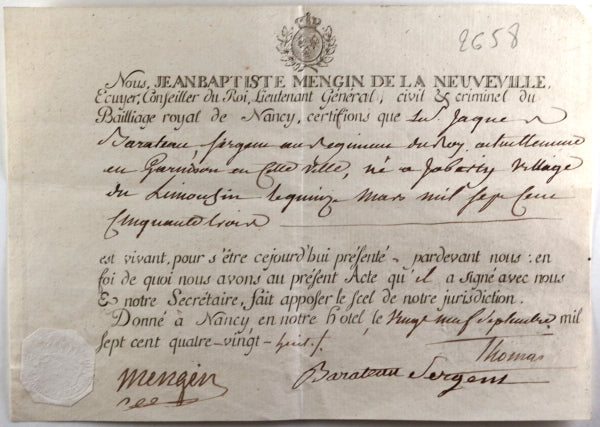 2658
Nous, JEAN BAPTISTE MENGIN DE LA NEUVEVILLE,
Ecuyer, Conseiller du Roi, Lieutenant Général, civil & criminel du
Bailliage royal de Nancy, certifions que Sr. Jaque
Barateau Sergent au Regiment du Roy actuellement
en Garnison en Cette Ville, né a Village
du Limousin le quinze Mars mil sept Cent
Cinquante trois
est vivant, pour s'être cejourd'hui présenté pardevant nous: en
foi de quoi nous avons au présent Acte qu'il a signé avec nous
& notre Secrétaire, fait apposer le scel de notre jurisdiction.
Donné à Nancy en notre hôtel, le Vingt neuf Septembre mil
sept cent quatre-vingt-huit.
Thomas
Mengin
Barateau Sergent